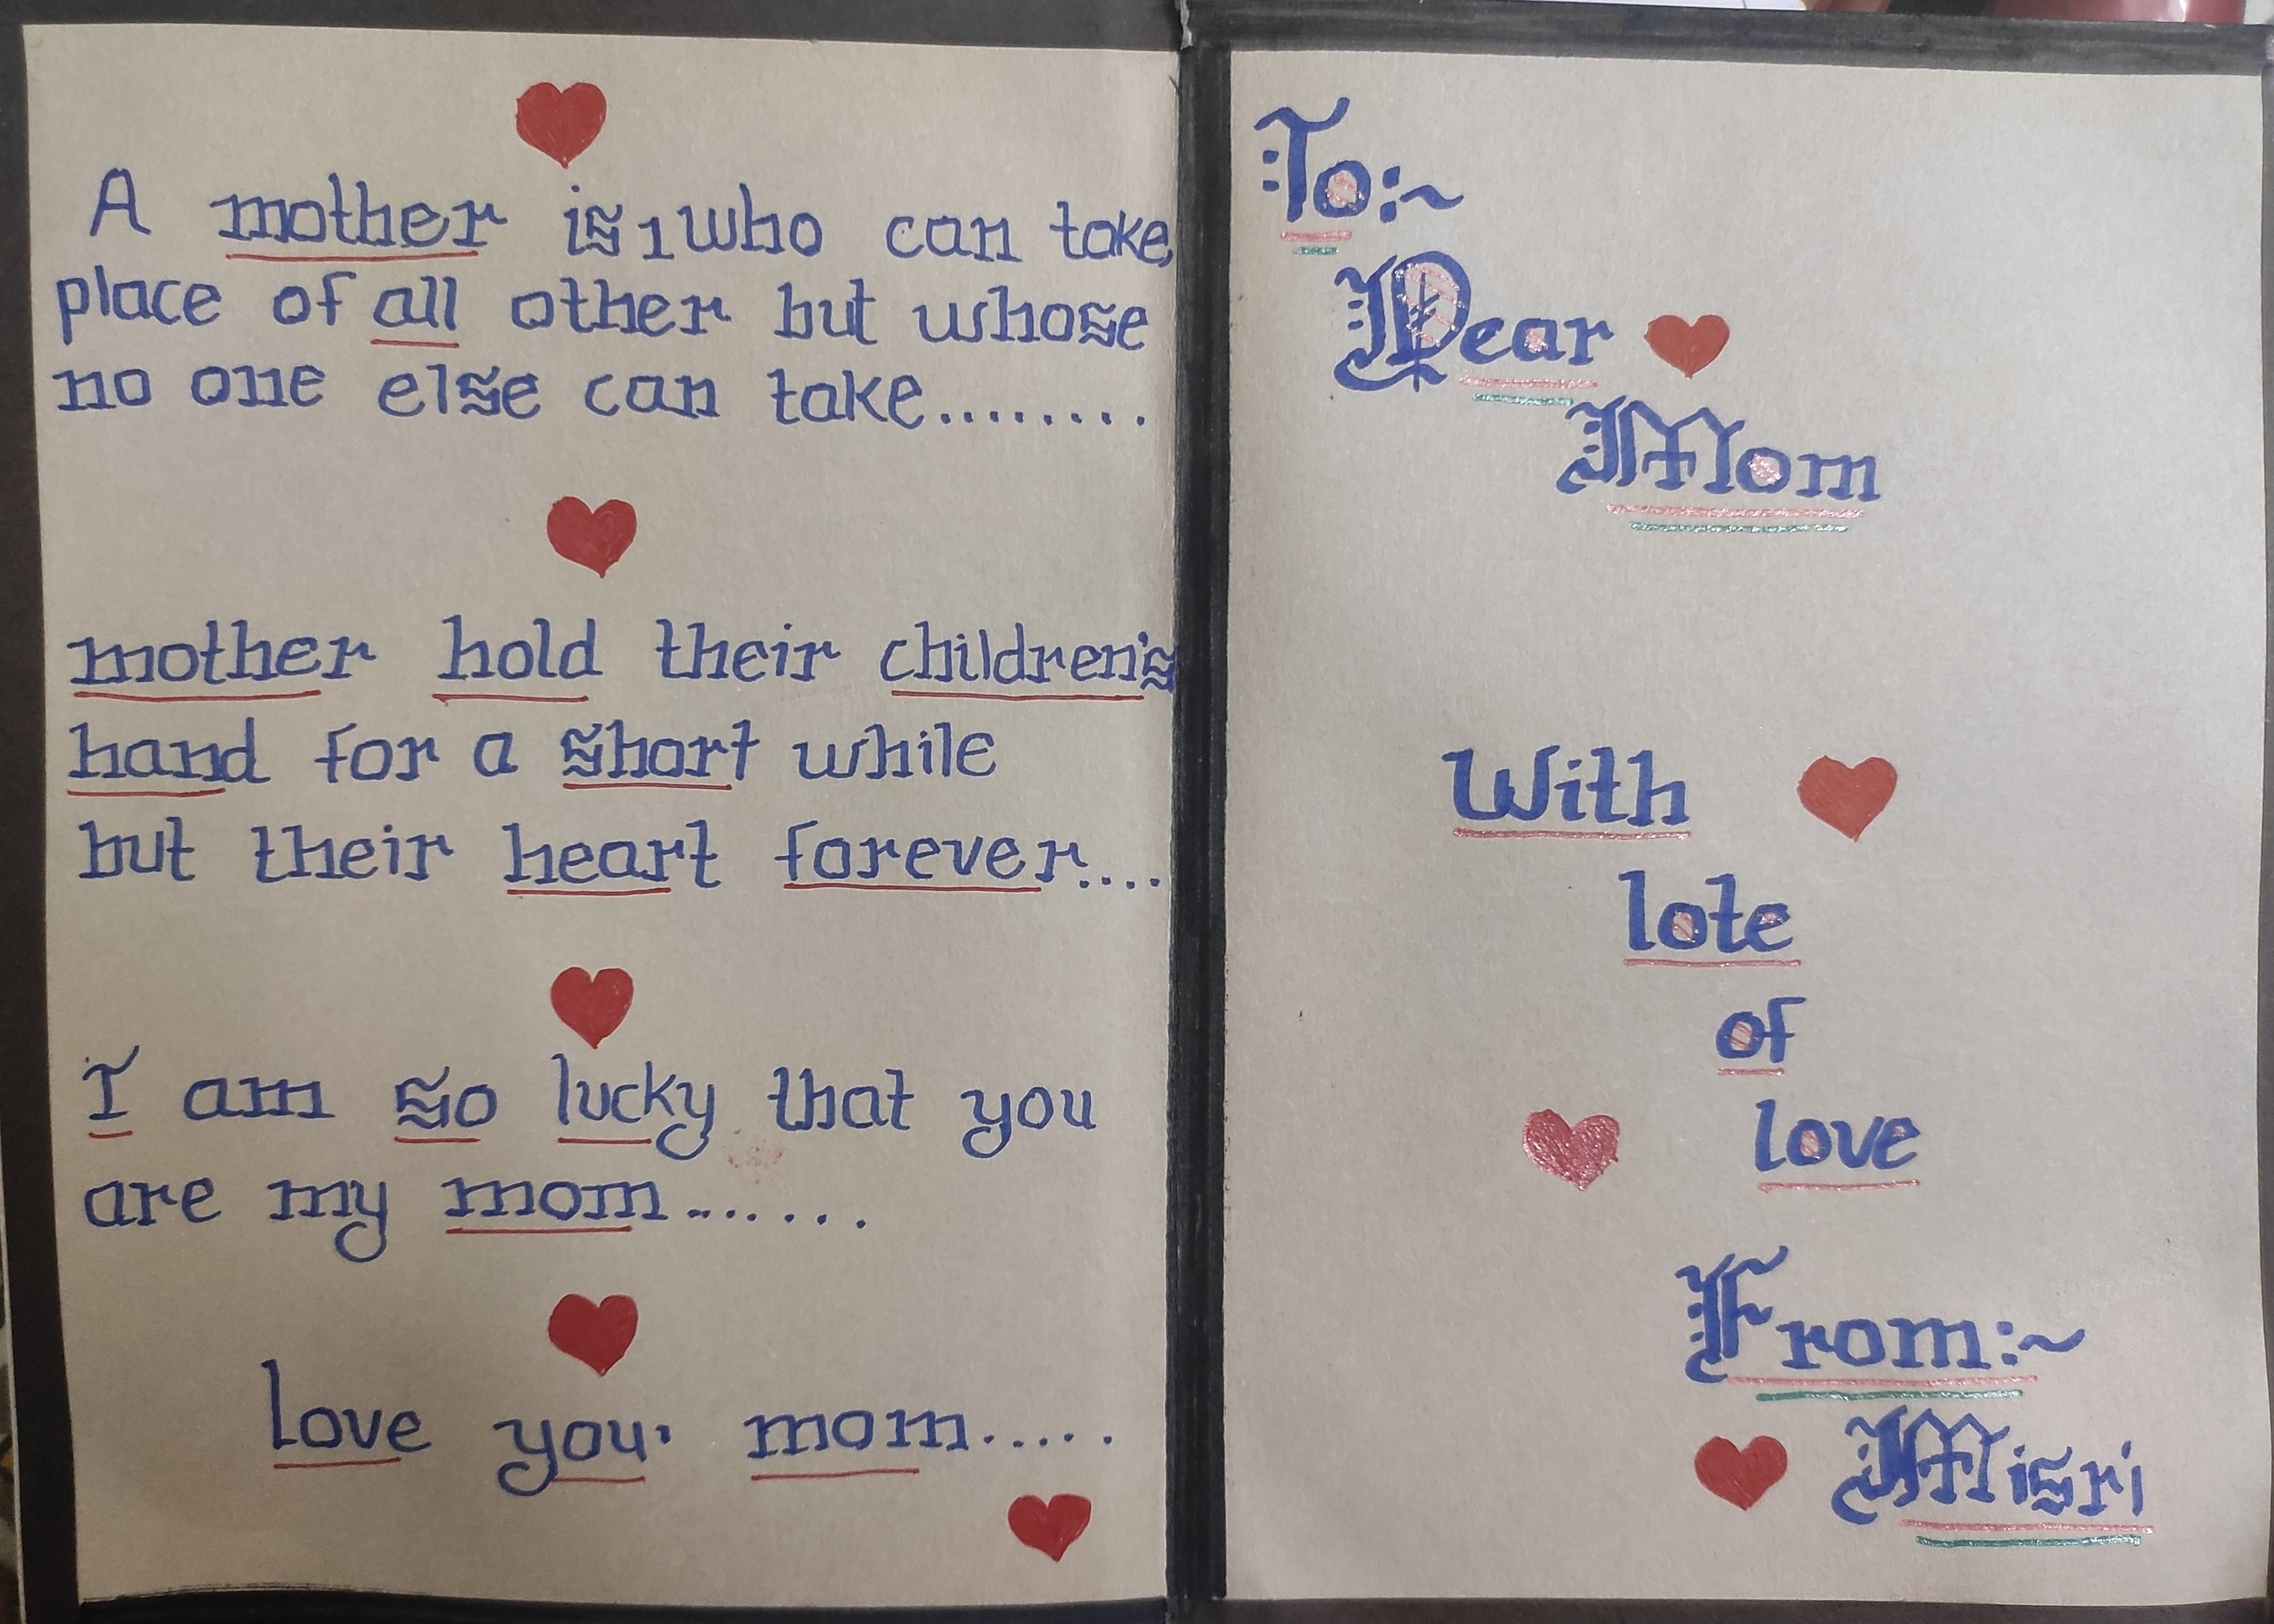 A mother is 1 who can take
place of all other but whose
no one else can take........
mother hold their children's
hand for a short while
but their heart forever.....
I am so lucky that you
are my mom.......
love you mom.....
To:~
Dear
Mom
With
lote
of
love
From:~
Misri